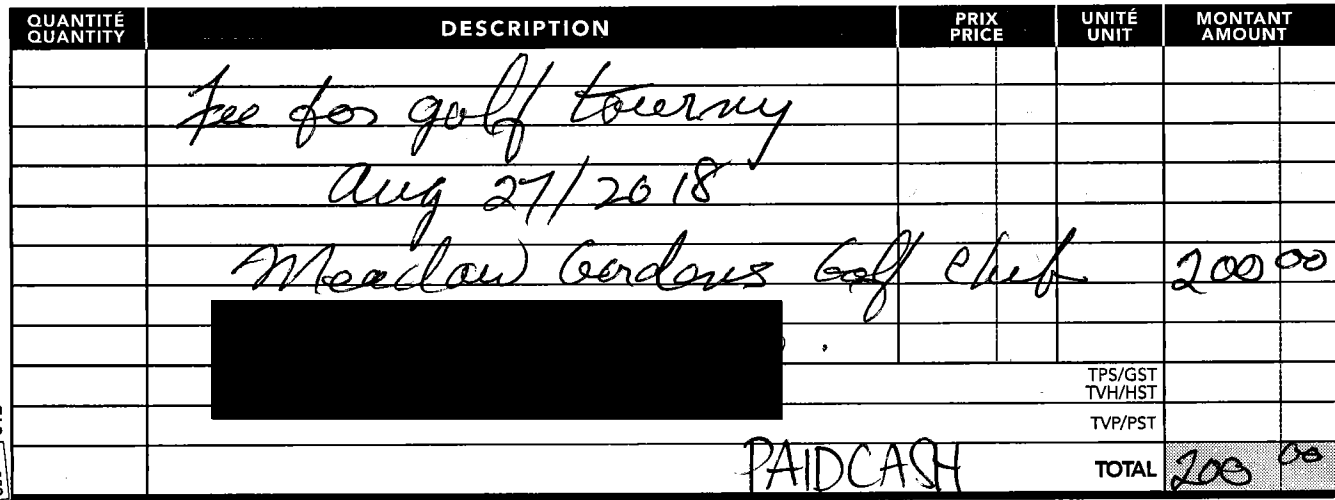 QUANTITÉ DESCRIPTION PRIX UNITÉ MONTANT
QUANTITY PRICE UNIT AMOUNT
Fee for golf tourny
Aug 27/2018
Meadow Gardens Golf Club 200 00
TPS/GST
TVH/HST
TVP/PST
PAID CASH TOTAL 200 00